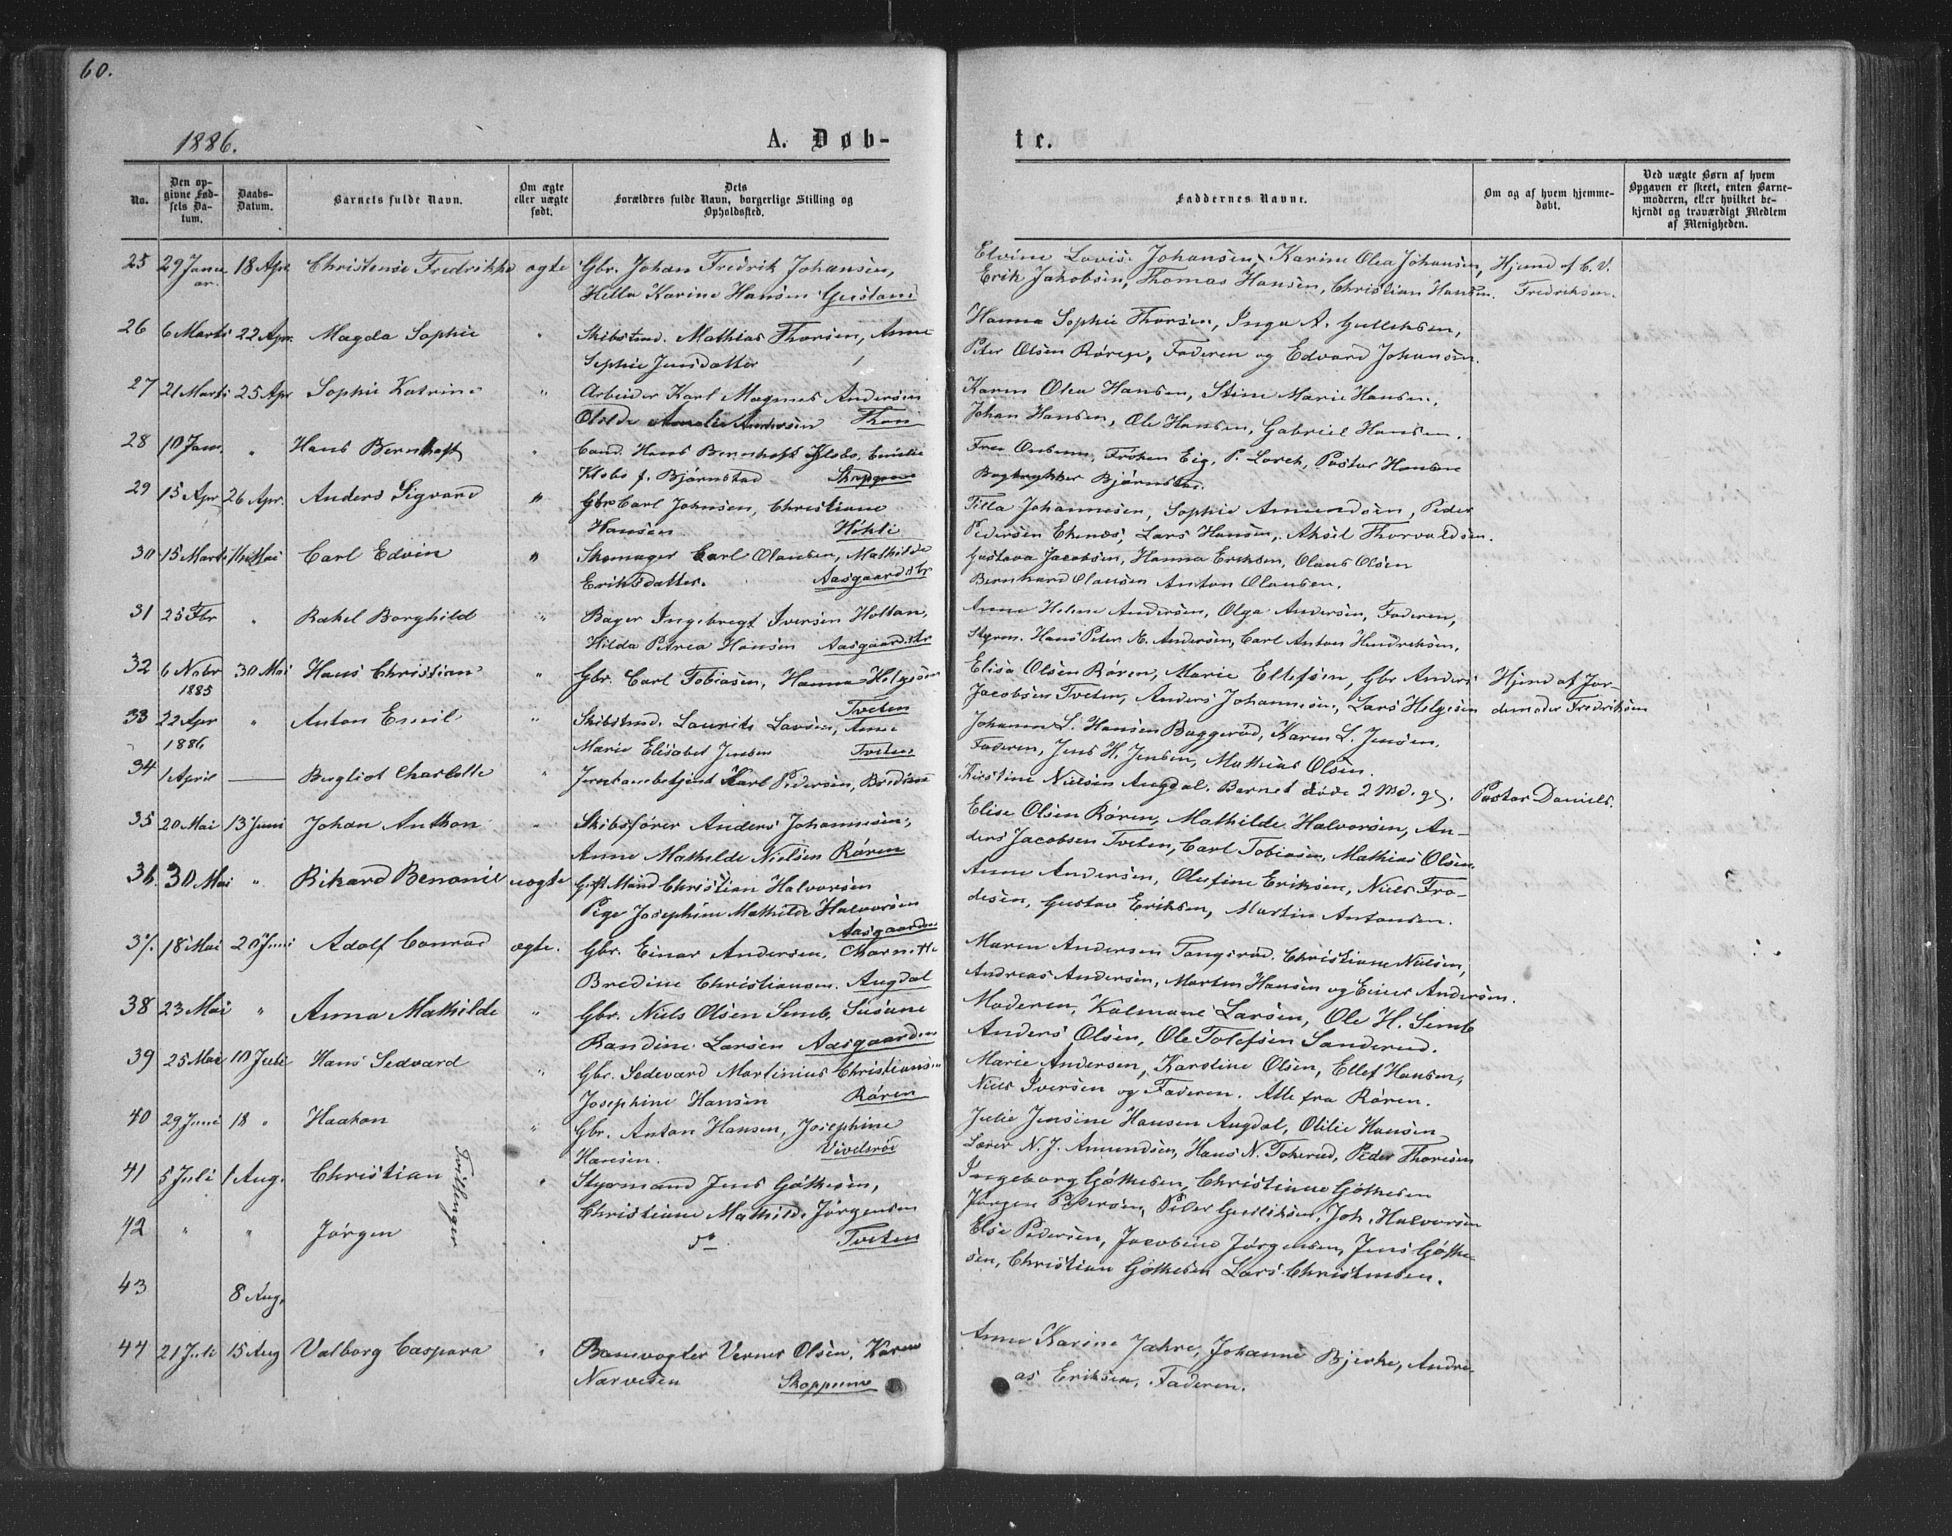 60.
1886.
A. Døb-
te.
No.
Den opgivne Fødsels Datum.
Daabs-Datum.
Barnets fulde Navn.
Om ægte eller uægte født.
Dets Forældres fulde Navn, borgerlige Stilling og Opholdssted.
Faddernes Navne.
Om og af hvem hjemmedøbt.
Ved uægte Børn af hvem Opgaven er skeet, enten Barnemoderen, eller hvilket bekjendt og troværdigt Medlem af Menigheden.
25 29 Janu 18 Apr. Christense Fredrikke ægte Gbr. Johan Fredrik Johansen, Elvine Lovise Johansen, Karine Olea Johansen, Hjemd af C. V.
ar. Hella Karine Hansen Erik Jakobsen, Thomas Hansen, Christian Hansen. Fredriksen.
26 6 Marts 22 Apr. Magda Sophie " Skibstmd. Mathias Thorsen, Anne Hanna Sophie Thorsen, Inga A. Gulliksen,
Sophie Jensdatter Peter Olsen Røren, Faderen og Edvard Johansen.
27 21 Marts 25 Apr Sophie Katrine " Arbeider Karl Magnus Andersen Karen Olea Hansen, Stine Marie Hansen,
Amalie Andersen Johan Hansen, Ole Hansen, Gabriel Hansen.
28 10 Jan. " Hans Bernhoft " Cand. Hans Bernhoft Klobo, Emilie Frøken Eig, P. Lorch, Pastor Hansen
Klobo f. Bjørnstad Skoppum Bogtrykker Bjørnstad.
29 15 Apr 26 Apr. Anders Sigvard " Gbr Carl Johnsen, Christiane Tilla Johannesen, Sophie Amundsen, Peder
Hansen Pedersen Ekenæs, Lars Hansen, Aksel Thorvaldsen.
30 15 Marts 16 Mai Carl Edvin " Skomager Carl Olausen, Mathilde Gustava Jacobsen, Hanna Eriksen, Olaus Olsen
Eriksdatter. Aasgaardstr Bernhard Olausen Anton Olausen.
31 25 Fbr " Rakel Borghild " Bager Ingebregt Iversen Holtan, Anne Helene Andersen, Olga Andersen, Faderen,
Hilda Petrea Hansen Aasgaardstr Styrm. Hans Peter E. Andersen, Carl Anton Hendriksen.
32 6 Nobr 30 Mai Hans Christian " Gbr. Carl Tobiasen, Hanna Helgesen Elisa Olsen Røren, Marie Ellefsen, Gbr Anders Hjemd af Jor-
1885 Tveten Jacobsen Tveten, Anders Johannesen, Lars Helgesen demoder Fredriksen
33 22 Apr " Anton Emil " Skibstmd. Laurits Larsen, Anne Johanne L. Hansen Baggerød, Karen L. Jensen,
1886 Marie Elisabet Jensen Tveten Faderen, Jens H. Jensen, Mathias Olsen.
34 1 April — Bergliot Charlotte " Jernbanebetjent Karl Pedersen, Bredine Kirstine Nielsen Augdal. Barnet døde 2 Md. gl. Pastor Daniels.
35 20 Mai 13 Juni Johan Anthon " Skibsfører Anders Johannesen, Elise Olsen Røren, Mathilde Halvorsen, An-
Anne Mathilde Nielsen Røren ders Jacobsen Tveten, Carl Tobiasen, Mathias Olsen.
36. 30 Mai " Rikard Benonie uægte Gift Mand Christian Halvorsen Anne Andersen, Olufine Eriksen, Niels Fro-
Pige Josephine Mathilde Halvorsen desen, Gustav Eriksen, Martin Antonsen.
Aasgaardstr
37. 18 Mai 20 Juni Adolf Conrad ægte. Gbr. Einar Andersen, Marnette Maren Andersen Tangsrød, Christiane Nielsen,
Bredine Christiansen. Augdal Andreas Andersen, Morten Hansen og Einar Andersen.
38 23 Mai " Anna Mathilde " Gbr. Niels Olsen Semb, Susane Moderen, Kalmane Larsen, Ole H. Semb
Randine Larsen Aasgaarden Anders Olsen, Ole Tolefsen Sanderud.
39 25 Mai 10 Juli Hans Sedvard " Gbr. Sedevard Martinius Christiansen Marie Andersen, Karoline Olsen, Ellef Hansen,
Josephine Hansen Røren Niels Iversen og Faderen. Alle fra Røren.
40 29 Juni 18 " Haakon " Gbr. Anton Hansen, Josephine Julie Jensine Hansen Augdal, Otilie Hansen
Hansen. Vivelsrød Lærer N. J. Amundsen, Hans N. Tokerud, Peder Thoresen
41 5 Juli 1 Aug. Christian " Styrmand Jens Gøthesen, Ingeborg Gøthesen, Christiane Gøthesen
Tvillinger
Christiane Mathilde Jørgensen Jørgen Pedersen, Peter Gulliksen, Joh. Halvorsen
42 " " Jørgen " do Tveten Else Pedersen, Jacobine Jørgensen, Jens Gøthe-
sen, Christian Gøthesen Lars Christensen.
43
8 Aug,
44 21 Juli 15 Aug Valborg Caspara " Banevogter Verner Olsen, Karen Anne Karine Jahre, Johanne Bjerke, Andre-
Narvesen Skoppum as Eriksen, Faderen.